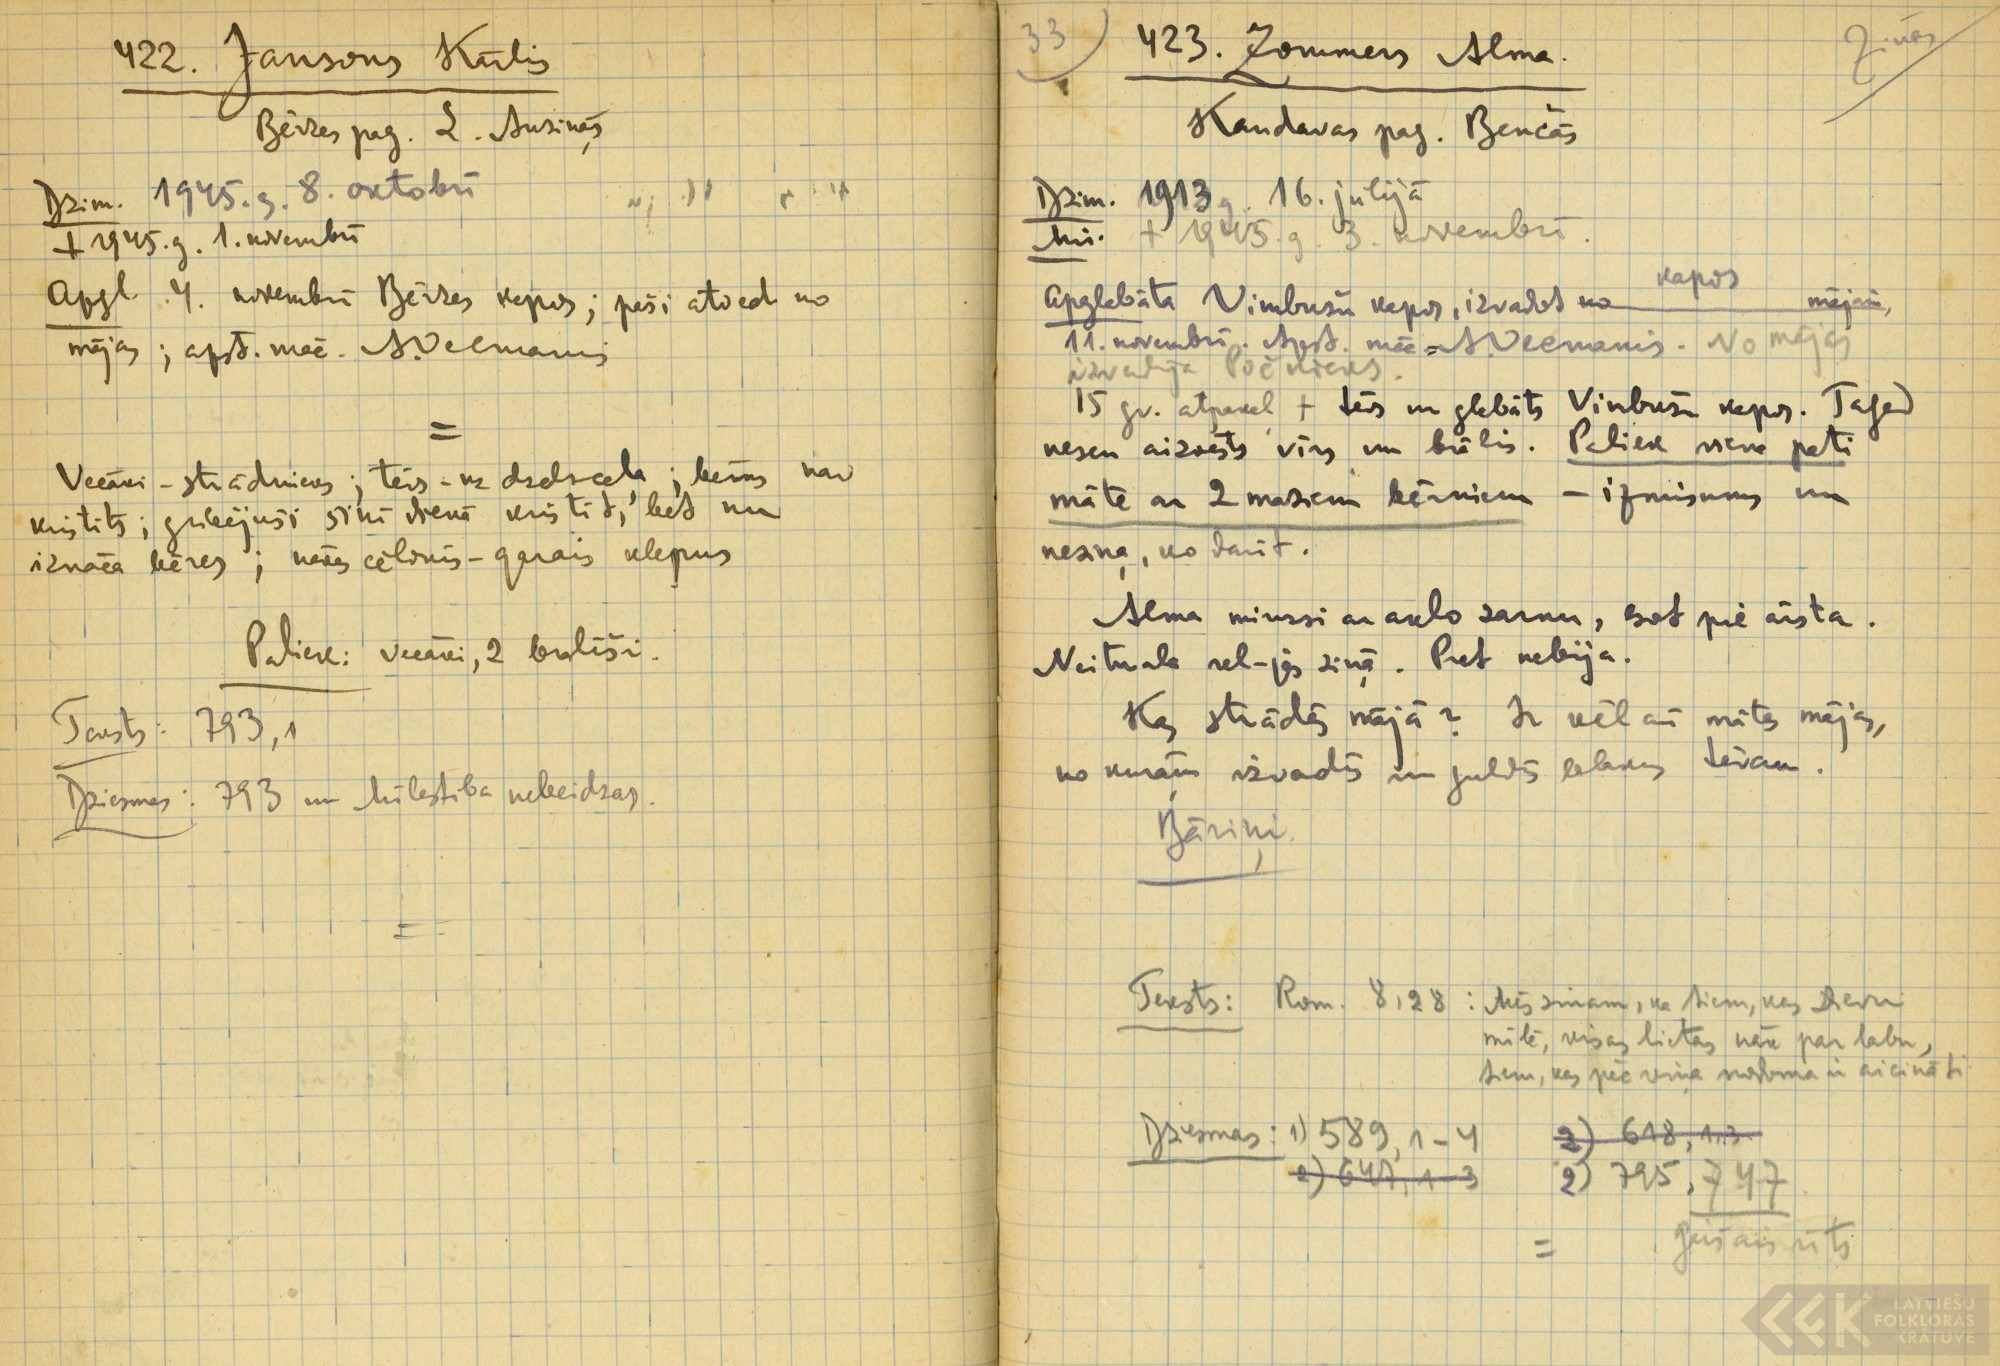 422. Jansons Kārlis
Bērzes pag. L. Ausiņās
Dzim. 1945. g. 8. oktobrī
+ 1945. g. 1. novembrī
Apgl. 4. novembrī Bērzes kapos; paši atved no
mājas; apst. māc. A. Veemanis
=
Vecāki - strādnieks; tēvs - uz dzelzceļa; bērns nav
kristīts; gribējuši šinī dienā kristīt, bet nu
iznāca bēres; nāves cēlonis - garais klepus
Paliek: vecāki, 2 brālīši.
Teksts: 793,1
Dziesmas: 793 un Mīlestība nebeidzas.
=
33)
423. Zommers Alma.
Ziņas
Kandavas pag. Benčās
Dzim. 1913 g. 16. jūlijā
Mir. + 1945. g. 3. novembrī.
kapos
Apglebāta Vimbušu kapos, izvadot no mājām,
11. novembrī. Apst. māc = A. Veemanis. No mājas
izvadīja Počnieks.
15 gv. atpakaļ + tēvs un glebāts Vimbušu kapos. Tagad
nesen aizvests vīrs un brālis. Paliek viena pati
māte ar 2 maziem bērniem - izmisums un
nezina, ko darīt.
Alma mirusi ar aklo zarnu, esot pie ārsta.
Neitrāla rel-jas ziņā. Pret nebija.
Kas strādās mājā? Ir vēl arī mātes mājas,
no kurām izvadīs un guldīs blakus tēvam.
Bāriņi
Teksts: Rom. 8,28: Mēs zinam, ka tiem, kas Dievu
mīlē, visas lietas nāk par labu,
tiem, kas pēc viņa nodoma ir aicināti
Dziesmas: 1) 589, 1-4 2) 618, 1.3.
2) 641, 1-3 2) 795, 747
gaišais rīts
=
LATVIEŠU
FOLKLORAS
KRĀTUVE